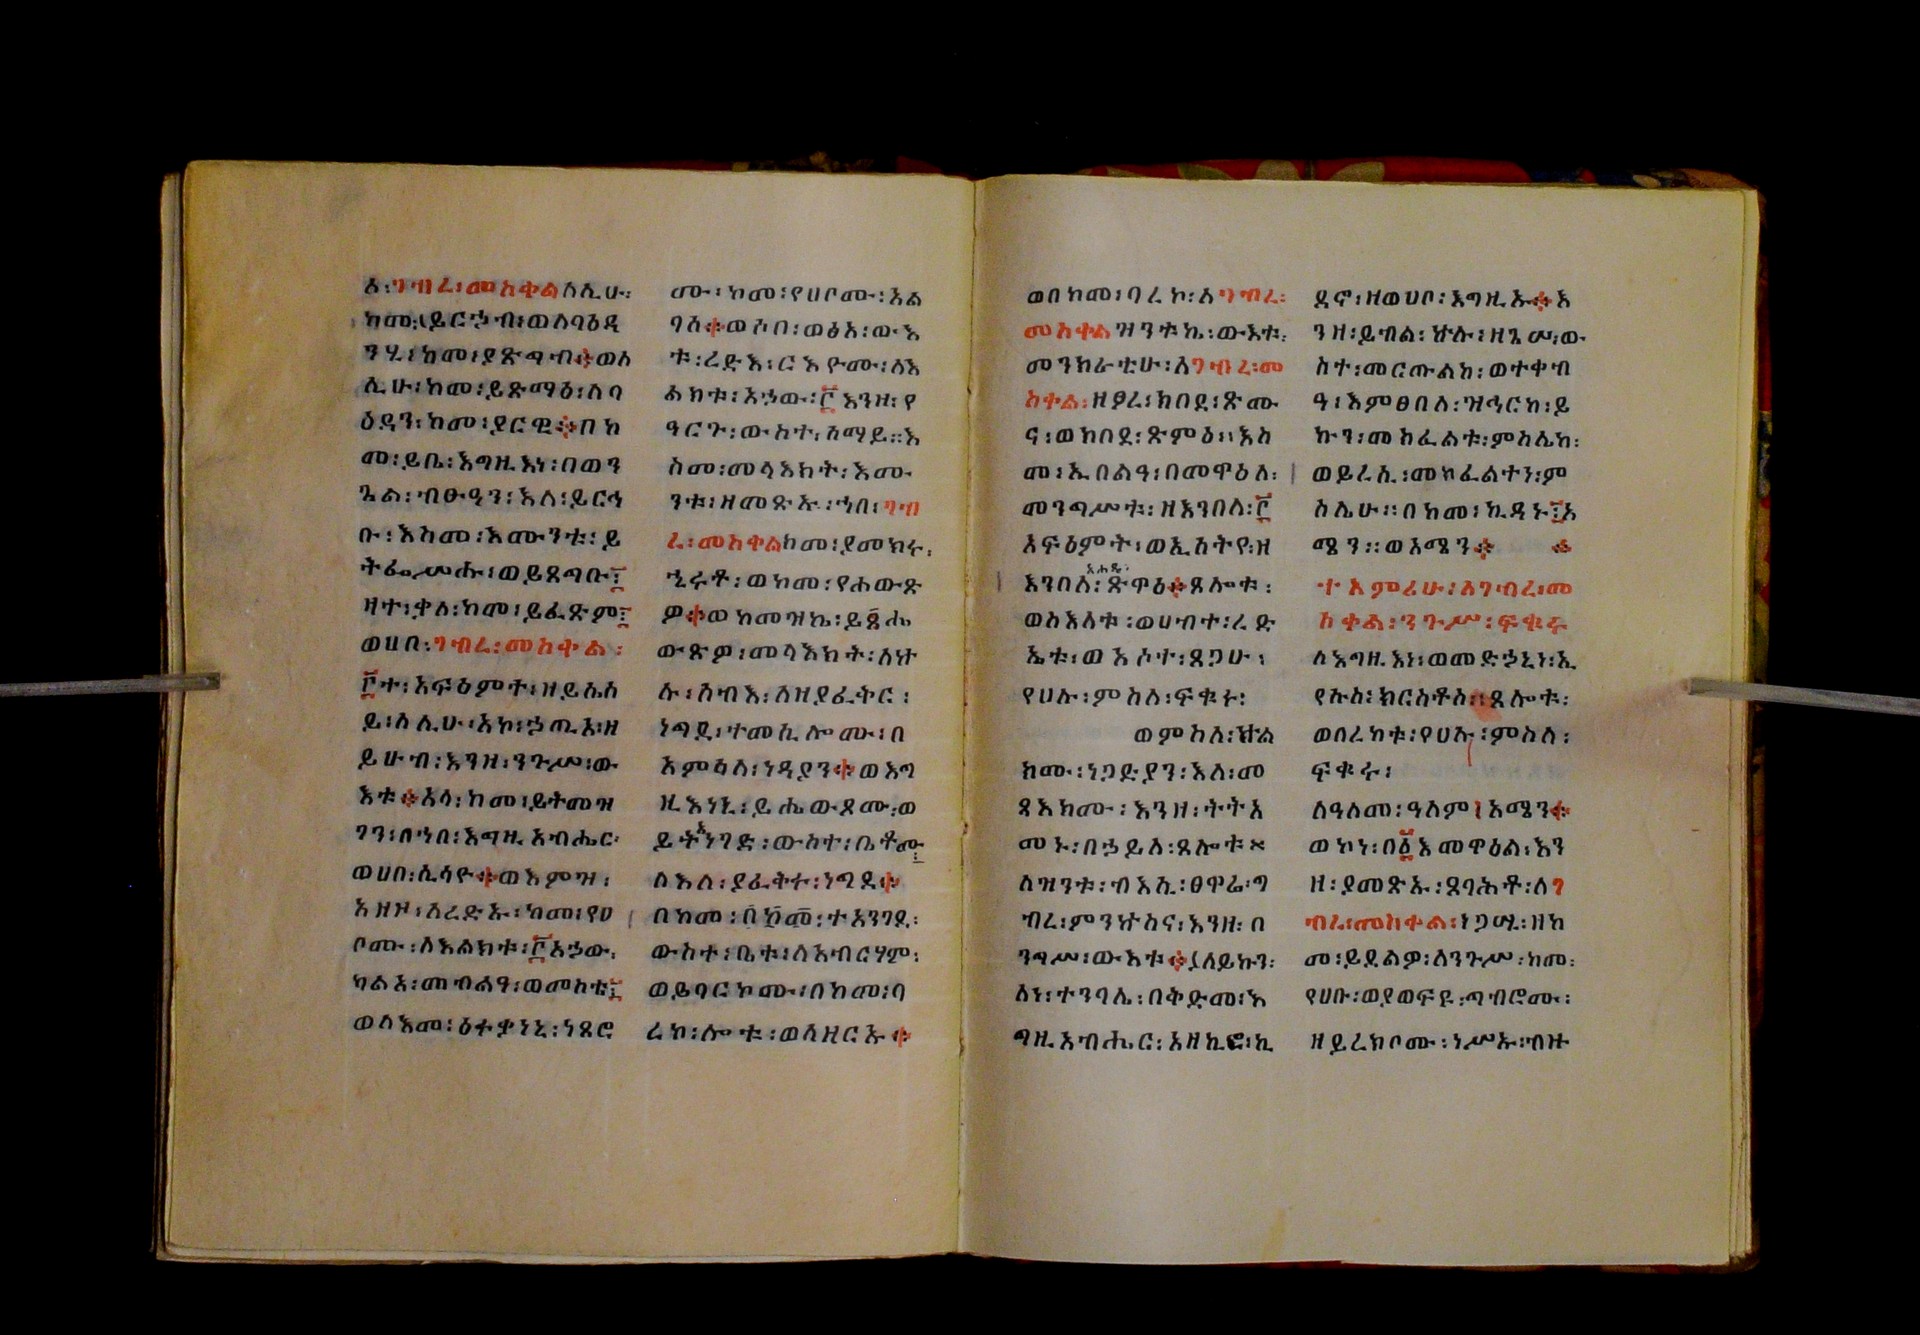 ለ፡ገብረ፡መስቀልሰሊሁ፡
ከመ፡ይርኃብ፡ወለባዕዳ
ንሂ፡ከመ፡ያጽጣብ፨ወለ
ሊሁ፡ከመ፡ይጽማዕ፡ለባ
ዕዳን፡ከመ፡ያርዊ፨በከ
መ፡ይቤ፡እግዚእነ፡በወን
ጌል፡ብፁዓን፡እለ፡ይርኅ
ቡ፡እስመ፡እሙንቱ፡ይ
ትፌሥሑ፡ወይጸግቡ፤
ዛተ፡ቃለ፡ከመ፡ይፈጽም፤
ወሀቡ፡ገብረ፡መስቀል፡
፲ተ፡አፍዕምት፡ዘይሴሰ
ይ፡ለሊሁ፡አኮ፡ኃጢአ፡ዘ
ይሁብ፡እንዘ፡ንጉሥ፡ው
እቱ፨አላ፡ከመ፡ይትመዝ
ገን፡ለኀበ፡እግዚአብሔር፡
ወሀቡ፡ሲሳዮ፨ወእምዝ፡
አዘዞ፡ለረድኡ፡ከመ፡የሀ
ቦሙ፡ለእልክቱ፡፲አኃው፡
ካልአ፡መብልዓ፡ወመስቴ፤
ወሶእመ፡ዕፉቃነኒ፡ነጸሮ
ሙ፡ከመ፡የሀቦሙ፡አል
ባስ፨ወሶበ፡ወፅአ፡ውእ
ቱ፡ረድእ፡ርእዮሙ፡ለእ
ልክቱ፡አኃው፡፲እንዘ፡የ
ዓርጉ፡ውስተ፡ሰማይ።እ
ስመ፡መላእክት፡እሙ
ንቱ፡ዘመጽኡ፡ኀበ፡ገብ
ረ፡መስቀልከመ፡ያመክሩ፡
ኂሩቶ፡ወከመ፡የሐውጽ
ዎ፨ወከመዝኬ፡ይሄ
ውጽዎ፡መላእክት፡ለኵ
ሉ፡ሰብእ፡ለዘያፈቅር፡
ነግደ፡ተመሲሎሙ፡በ
አምሳለ፡ነዳያን፨ወእግ
ዚእነኒ፡ይሔውጾሙ፡ወ
ይትእንግድ፡ውስተ፡ቤቶሙ፡
ለእለ፡ያፈቅሩ፡ነግደ፨
በከመ፡በከመ፡ተአንገደ፡
ውስተ፡ቤቱ፡ለአብርሃም፡
ወይባርኮሙ፡በከመ፡ባ
ረኮ፡ሎቱ፡ወለዘርኡ፨
ወበከመ፡ባረኮ፡ለገብረ፡
መስቀልዝንቱኬ፡ውእቱ፡
መንክራቲሁ፡ለገብረ፡መ
ስቀል፡ዘፆረ፡ክበደ፡ጽሙ
ና፡ወክበደ፡ጽምዕ።እስ
መ፡ኢበልዓ፡በመዋዕለ፡
መንግሥቱ፡ዘእንበለ፡፲
አፍዕምት፡ወኢሰትየ፡ዘ
እንበለ፡አሐዱ፡ጽዋዕ፨ጸሎቱ፡
ወስእለቱ፡ወሀብተ፡ረድ
ኤቱ፡ወእሶተ፡ጸጋሁ፡
የሀሉ፡ምስለ፡ፍቁሩ፡
ወምስለ፡ዅል
ክሙ፡ነጋድያን፡እለ፡መ
ጻእክሙ፡እንዘ፡ትትአ
መኑ፡በኃይለ፡ጸሎቱ፡
ለዝንቱ፡ብእሲ፡ፀዋሬ፡ግ
ብረ፡ምንኵስና፡እንዘ፡በ
ንግሥ፡ውእቱ፨ለይኩን፡
ለነ፡ተንባሌ፡በቅድመ፡እ
ግዚአብሔር፡አዘኪሮ፡ኪ
ዳኖ፡ዘወሀቦ፡እግዚኡ፨እ
ንዘ፡ይብል፡ዅሉ፡ዘጌሠ፡ው
ስተ፡መርጡልከ፡ወተቀብ
ዓ፡እምፀበለ፡ዝኃርከ፡ይ
ኩን፡መክፈልቱ፡ምስሌከ፡
ወይረሲ፡መክፈልተን፡ም
ስሌሁ።በከመ፡ኪዳኑ፤አ
ሜን።ወአሜን፨
ተአምሪሁ፡ለገብረ፡መ
ስቀል፡ንጉሥ፡ፍቁሩ
ለእግዚእነ፡ወመድኃኒነ፡ኢ
የሱስ፡ክርስቶስ።ጸሎቱ፡
ወበረከቱ፡የሀሉ፡ምስለ፡
ፍቁሩ፡
ለዓለመ፡ዓለም፡አሜን፨
ወኮነ፡በ፩እመዋዕል፡እን
ዘ፡ያመጽኡ፡ጸባሕቶ፡ለገ
ብረ፡መስቀል፡ነጋሢ፡ዘከ
መ፡ይደልዎ፡ለንጉሥ፡ከመ፡
የሀቡ፡ወያወፍዩ፡ጣብሮሙ፡
ዘይረክቦሙ፡ነሥኡ፡ብዙ